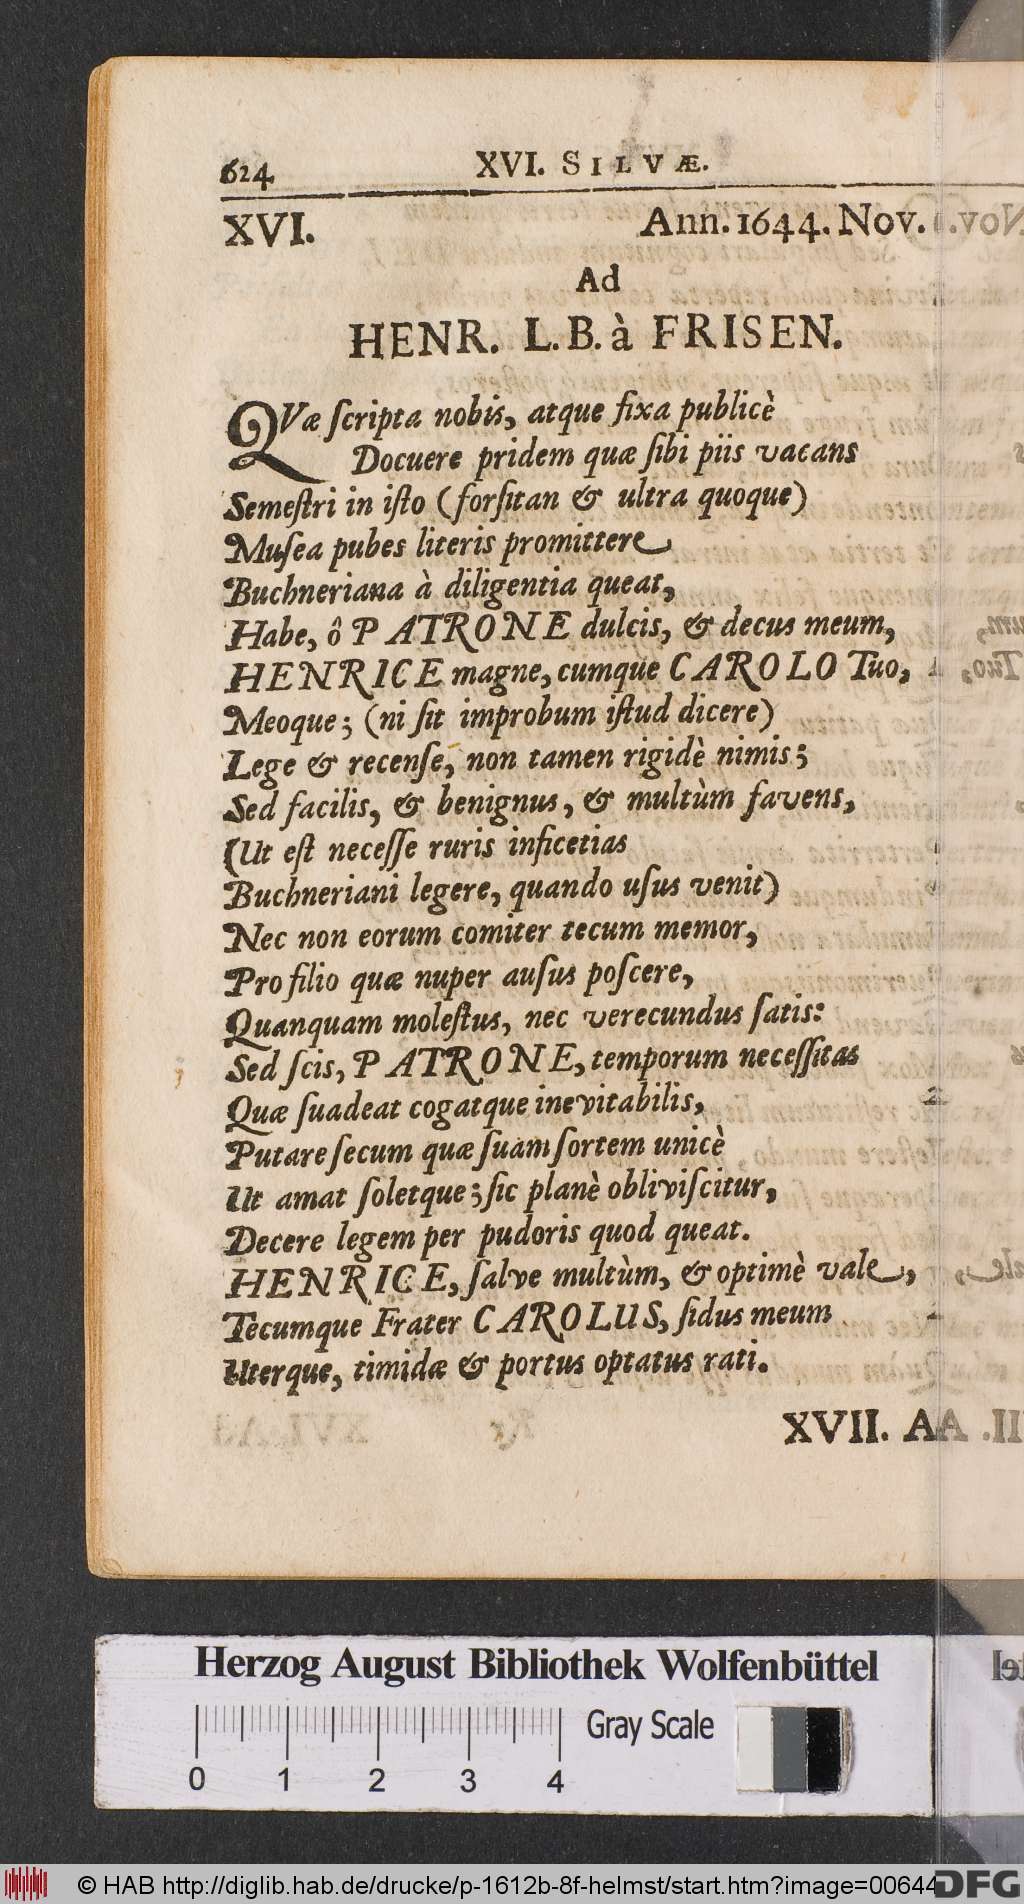 624
XVI. SILVÆ.
XVI. Ann. 1644. Nov.
Ad
HENR. L.B. à FRISEN.
QVæ ſcripta nobis, atque fixa publicè
Docuere pridem quæ ſibi piis vacans
Semeſtri in iſto (forſitan & ultra quoque)
Muſea pubes literis promittere
Buchneriana à diligentia queat,
Habe, ô PATRONE dulcis, & decus meum,
HENRICE magne, cumque CAROLO Tuo,
Meoque; (ni ſit improbum iſtud dicere)
Lege & recenſe, non tamen rigidè nimis;
Sed facilis, & benignus, & multùm favens,
(Ut eſt neceſſe ruris inficetias
Buchneriani legere, quando uſus venit)
Nec non eorum comiter tecum memor,
Pro filio quæ nuper auſus poſcere,
Quanquam moleſtus, nec verecundus ſatis:
Sed ſcis, PATRONE, temporum neceſſitas
Quæ ſuadeat cogatque inevitabilis,
Putare ſecum quæ ſuam ſortem unicè
Ut amat ſoletque; ſic planè obliviſcitur,
Decere legem per pudoris quod queat.
HENRICE, ſalve multùm, & optimè vale,
Tecumque Frater CAROLUS, ſidus meum
Uterque, timidæ & portus optatus rati.
XVII. A
Herzog August Bibliothek Wolfenbüttel
Gray Scale
0 1 2 3 4
© HAB http://diglib.hab.de/drucke/p-1612b-8f-helmst/start.htm?image=00644
DFG